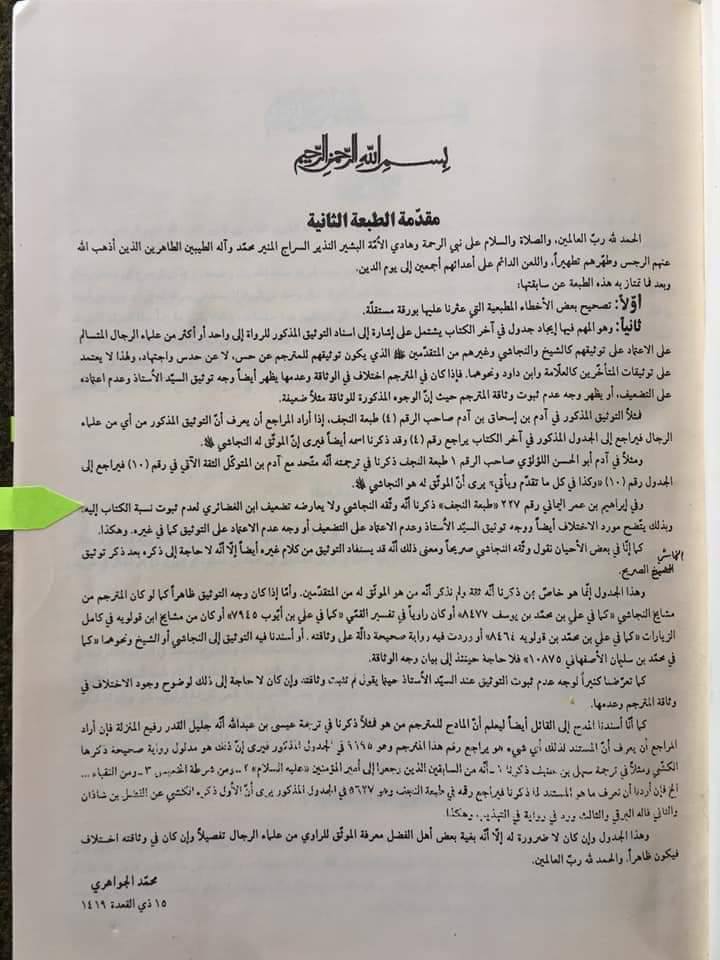 بسم الله الرحمن الرحيم
مقدّمة الطبعة الثانية
الحمد لله ربّ العالمين، والصلاة والسلام على نبي الرحمة وهادي الأمّة البشير النذير السراج المنير محمّد وآله الطيبين الطاهرين الذين أذهب الله
عنهم الرجس وطهّرهم تطهيراً، واللعن الدائم على أعدائهم أجمعين إلى يوم الدين.
وبعد فما تمتاز به هذه الطبعة عن سابقتها:
أوّلاً: تصحيح بعض الأخطاء المطبعية التي عثرنا عليها بورقة مستقلّة.
ثانياً: وهو المهم فيها إيجاد جدول في آخر الكتاب يشتمل على إشارة إلى اسناد التوثيق المذكور للرواة إلى واحد أو أكثر من علماء الرجال المتسالم
على الاعتماد على توثيقهم كالشيخ والنجاشي وغيرهم من المتقدّمين الذي يكون توثيقهم للمترجم عن حس، لا عن حدس واجتهاد، ولهذا لا يعتمد
على توثيقات المتأخّرين كالعلّامة وابن داود ونحوهما. فإذا كان في المترجم اختلاف في الوثاقة وعدمها يظهر أيضاً وجه توثيق السيّد الأستاذ وعدم اعتماده
على التضعيف، أو يظهر وجه عدم ثبوت وثاقة المترجم حيث إنّ الوجوه المذكورة للوثاقة مثلاً ضعيفة.
فمثلاً التوثيق المذكور في آدم بن إسحاق بن آدم صاحب الرقم (٤) طبعة النجف، إذا أراد المراجع أن يعرف أنّ التوثيق المذكور من أي من علماء
الرجال فيراجع إلى الجدول المذكور في آخر الكتاب يراجع رقم (٤) وقد ذكرنا اسمه أيضاً فيرى إنّ الموثّق له النجاشي
ومثلاً في آدم أبو الحسن اللؤلؤي صاحب الرقم ١ طبعة النجف ذكرنا في ترجمته أنّه متّحد مع آدم بن المتوكّل الثقة الآتي في رقم (١٠) فيراجع إلى
الجدول رقم (١٠) «وكذا في كل ما تقدّم ويأتي» يرى أنّ الموثّق له هو النجاشي
وفي إبراهيم بن عمر اليماني رقم ٢٢٧ «طبعة النجف» ذكرنا أنّه وثّقه النجاشي ولا يعارضه تضعيف ابن الغضائري لعدم ثبوت نسبة الكتاب إليه.
وبذلك يتّضح مورد الاختلاف أيضاً ووجه توثيق السيّد الأستاذ وعدم الاعتماد على التضعيف أو وجه عدم الاعتماد على التوثيق كما في غيره. وهكذا.
كما إنّا في بعض الأحيان نقول وثّقه النجاشي صريحاً ومعنى ذلك أنّه قد يستفاد التوثيق من كلام غيره أيضاً إلّا أنّه لا حاجة إلى ذكره بعد ذكر توثيق
الشيخ الصريح.
وهذا الجدول إنّما هو خاصّ بمن ذكرنا أنّه ثقة ولم نذكر أنّه من هو الموثّق له من المتقدّمين. وأمّا إذا كان وجه التوثيق ظاهراً كما لو كان المترجم من
مشايخ النجاشي «كما في علي بن محمّد بن يوسف ٨٤٧٧ أو كان راوياً في تفسير القمّي «كما في علي بن أيّوب ٧٩٤٥» أو كان من مشايخ ابن قولويه في كامل
الزيارات «كما في علي بن محمّد بن قولويه ٨٤٦٤» أو وردت فيه رواية صحيحة دالّة على وثاقته . أو أسندنا فيه التوثيق إلى النجاشي أو الشيخ ونحوهما «كما
في محمّد بن سليمان الأصفهاني ١٠٨٧٥» فلا حاجة حينئذ إلى بيان وجه الوثاقة.
كما تعرّضنا كثيراً لوجه عدم ثبوت التوثيق عند السيّد الأستاذ حينما يقول لم تثبت وثاقته، وإن كان لا حاجة إلى ذلك لوضوح وجود الاختلاف في
وثاقة المترجم وعدمها.
كما أنّا أسندنا المدح إلى القائل أيضاً ليعلم أنّ المادح للمترجم من هو فمثلاً ذكرنا في ترجمة عيسى بن عبدالله أنّه جليل القدر رفيع المنزلة فإن أراد
المراجع أن يعرف أنّ المستند لذلك أي شيء هو يراجع رقم هذا المترجم وهو ٩١٩٥ في الجدول المذكور فيرى إنّ ذلك هو مدلول رواية صحيحة ذكرها
الكشّي ومثلاً في ترجمة سهل بن حنيف ذكرنا ١ ـ أنّه من السابقين الذين رجعوا إلى أمير المؤمنين «عليه السلام» ٢ ـ ومن شرطة الخميس ٣ ـ ومن النقباء ...
الخ فإن أردنا أن نعرف ما هو المستند لما ذكرنا فيراجع رقمه في طبعة النجف وهو ٥٦٢٧ في الجدول المذكور يرى أنّ الأول ذكره الكشي عن الفضل بن شاذان
والثاني قاله البرقي والثالث ورد في رواية في التهذيب. وهكذا.
وهذا الجدول وإن كان لا ضرورة له إلّا أنّه بغية بعض أهل الفضل معرفة الموثّق للراوي من علماء الرجال تفصيلاً وإن كان في وثاقته اختلاف
فيكون ظاهراً. والحمد لله ربّ العالمين.
محمّد الجواهري
١٥ ذي القعدة ١٤١٩